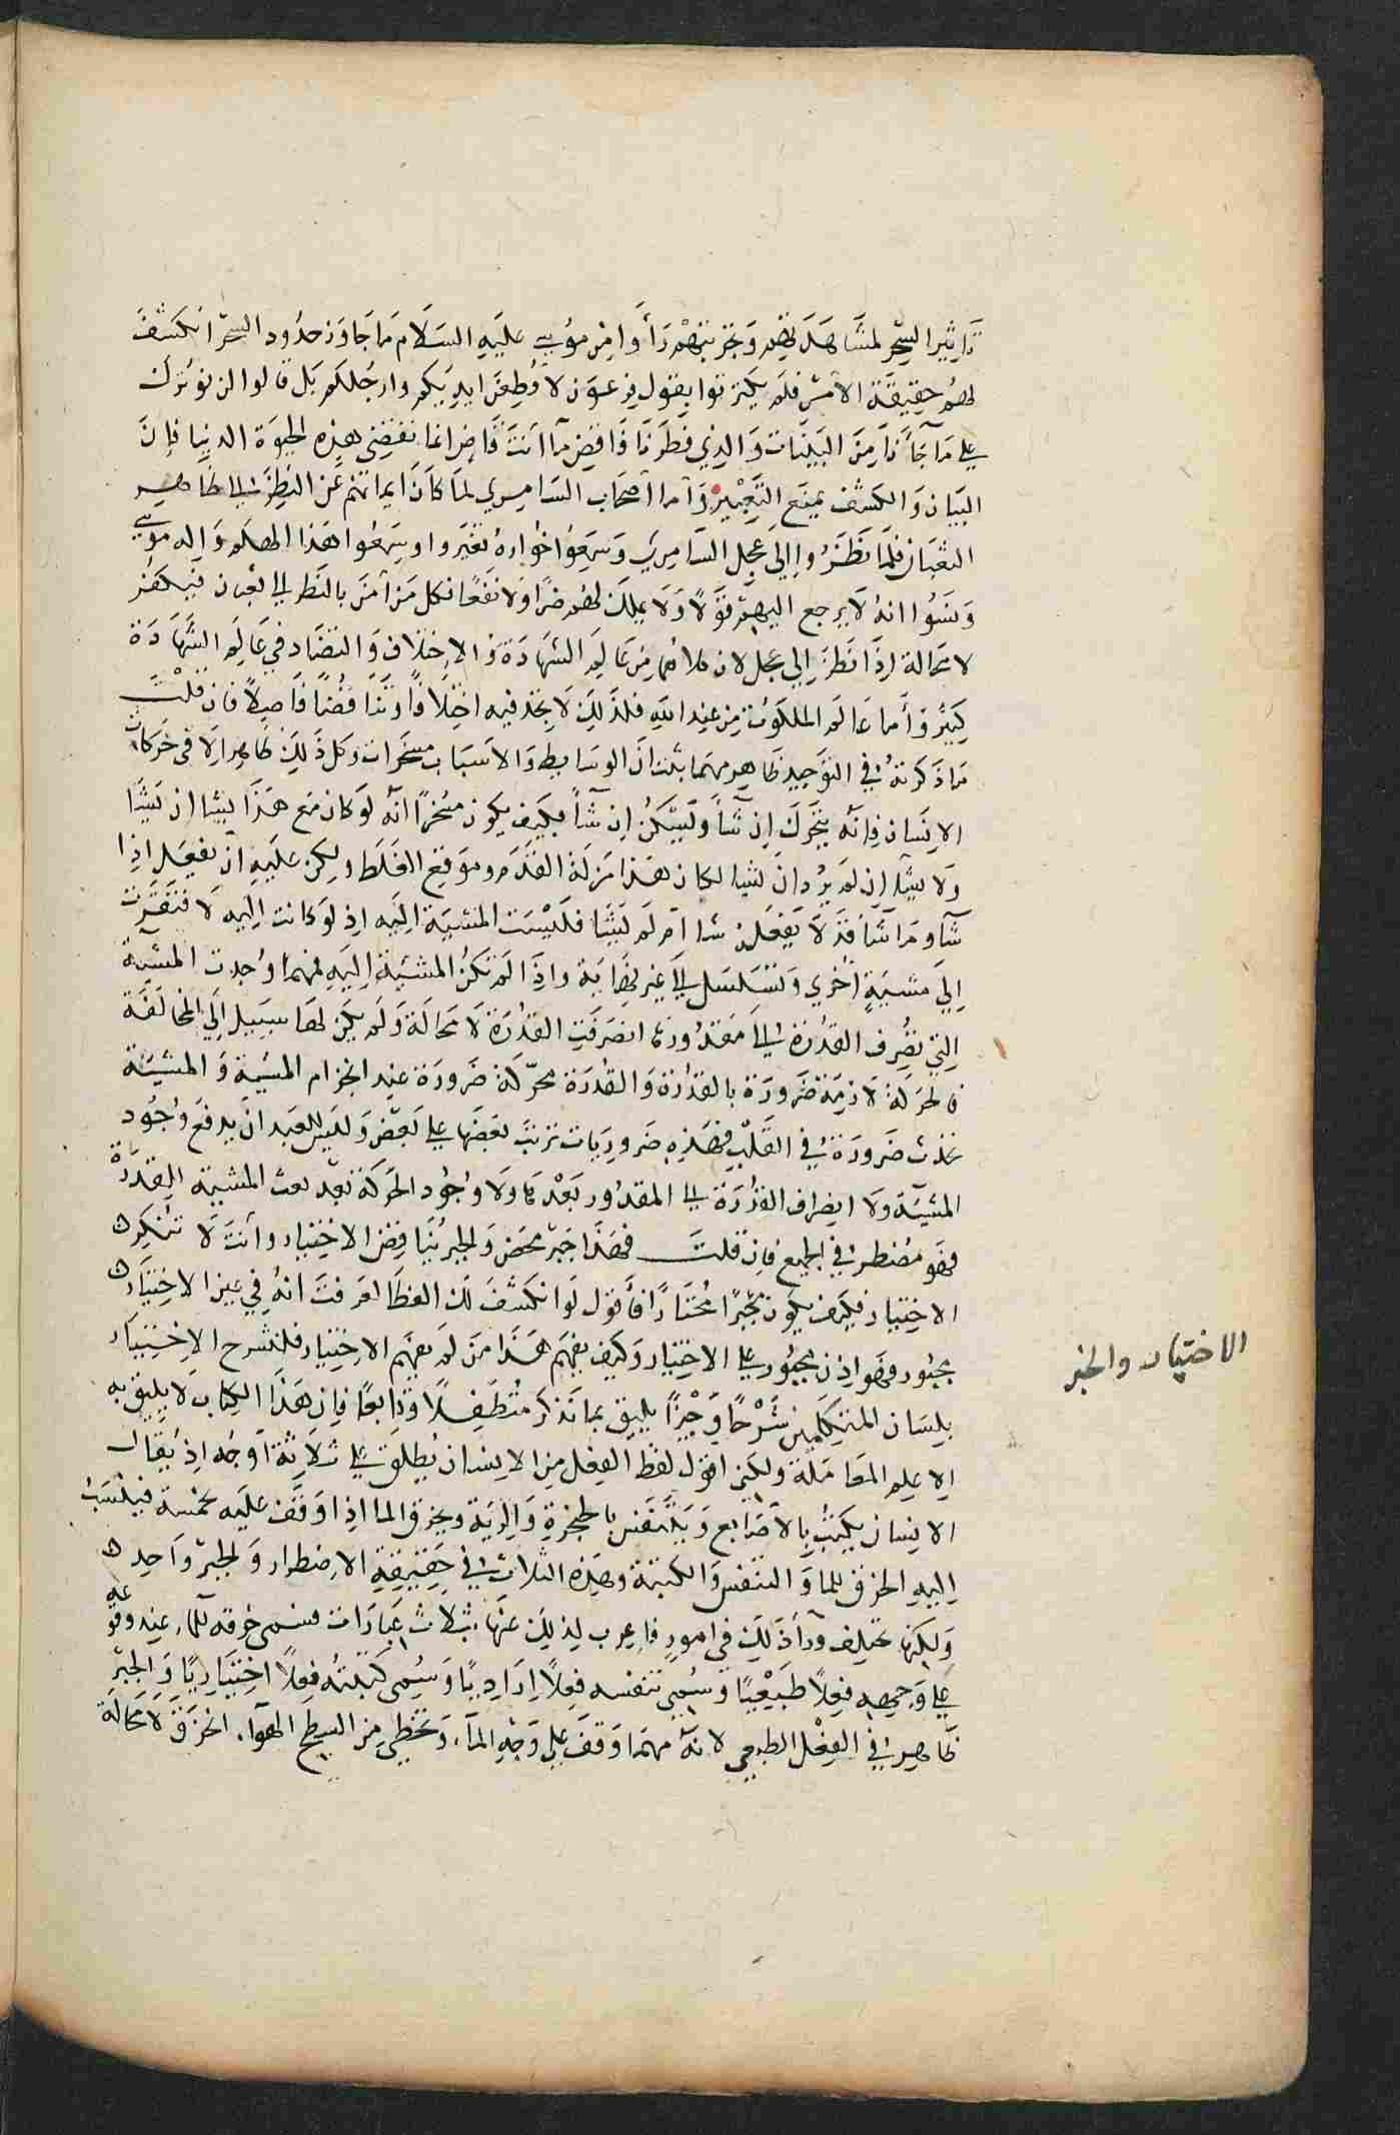 تاثير السحر لمشاهدتهم وتجربتهم رأوا من موسى عليه السلام ما جاوز حدود السحر انكشف
لهم حقيقة الامر فلم يكترثوا بقول فرعون لاقطعن ايديكم وارجلكم بل قالوا لن نؤثرك
على ما جآءنا من البينات والذي فطرنا فاقض ما انت قاض انما تقضي هذه الحيوة الدنيا فان
البيان والكشف يمنع التغيير واما اصحاب السامري لما كان ايمانهم عن النظر الى ظاهر
الثعبان فلما نظروا الى عجل السامري وسمعوا خواره تغيروا وسمعوا هذا الهكم واله موسى
ونسوا انه لا يرجع اليهم قولا ولا يملك لهم ضرا ولا نفعا فكل من آمن بالنظر الى ثعبان فيكفر
لا محالة اذا نظر الى عجل لان كلاهما من عالم الشهادة والاختلاف والتضاد في عالم الشهادة
كثير وأما عالم الملكوت من عند الله فلذلك لا تجد فيه اختلافا وتناقضا اصلا فان قلت
ما ذكرته في التوحيد ظاهر مهما ثبت ان الوسايط والاسباب مسخرات وكل ذلك ظاهر الا في حركات
الانسان فانه يتحرك ان شآء ويسكن ان شآء فكيف يكون مسخرا انه لو كان مع هذا يشا ان يشا
ولا يشآ ان لم يرد ان يشا لكان هذا مزلة القدم وموقع الغلط ولكن عليه ان يفعل اذا
شآ وما شآ فقد لا يفعل شا ام لم يشا فليست المشية اليه اذ لو كانت اليه لافتقرت
الى مشية اخرى وتسلسل الى غير نهاية واذا لم تكن المشية اليه فمهما وجدت المشية
التي تصرف القدرة الى مقدورها انصرفت القدرة لا محالة ولم يكن لها سبيل الى المخالفة
فالحركة لازمة ضرورة بالقدرة والقدرة محركة ضرورة عند انجزام المشية والمشية
تحدث ضرورة في القلب فهذه ضروريات ترتب بعضها على بعض وليس للعبد ان يدفع وجود
المشية ولا انصراف القدرة الى المقدور بعدها ولا وجود الحركة بعد بعث المشية القدرة
فهو مضطر في الجميع فان قلت فهذا جبر محض والجبر يناقض الاختيار وانت لا تنكر
الاختيار فكيف يكون مجبرا مختارا فأقول لو انكشف لك الغطا لعرفت انه في عين الاختيار
مجبور فهو اذن مجبور على الاختيار وكيف يفهم هذا من لم يفهم الاختيار فلنشرح الاختيار
بلسان المتكلمين شرحا وجيزا يليق بما نذكر متطفلا وتابعا فان هذا الكتاب لا يليق به
الا علم المعاملة ولكني اقول لفظ الفعل من الانسان يطلق على ثلاثة اوجه اذ يقال
الانسان يكتب بالاصابع ويتنفس بالحنجرة والرية ويخرق الما اذا وقف عليه بجسمه فينسب
اليه الخرق للما والتنفس والكتبة وهذه الثلاث في حقيقة الاضطرار والجبر واحد
ولكنها تختلف ورآ ذلك في امور فاعرب لذلك عنها بثلاث عبارات فسمى خرقه للماء عند وقوعه
على وجهه فعلا طبيعيا وسمى تنفسه فعلا اراديا وسمى كتبته فعلا اختياريا والجبر
ظاهر في الفعل الطبيعي لانه مهما وقف على وجه المآء وتخطى من السطح الهوآء انخرق لا محالة
الاختيار والجبر